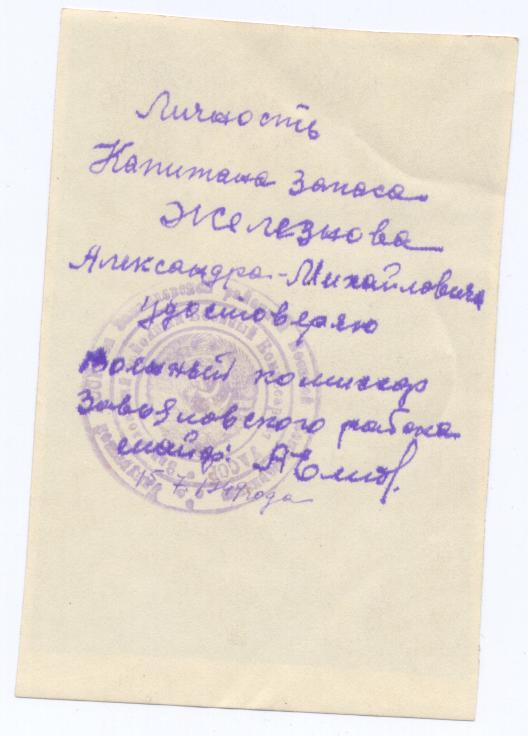 Личность
Капитана запаса
Железнова
Александра Михайловича
удостоверяю
Военный комиссар
Завьяловского района
майор:
года